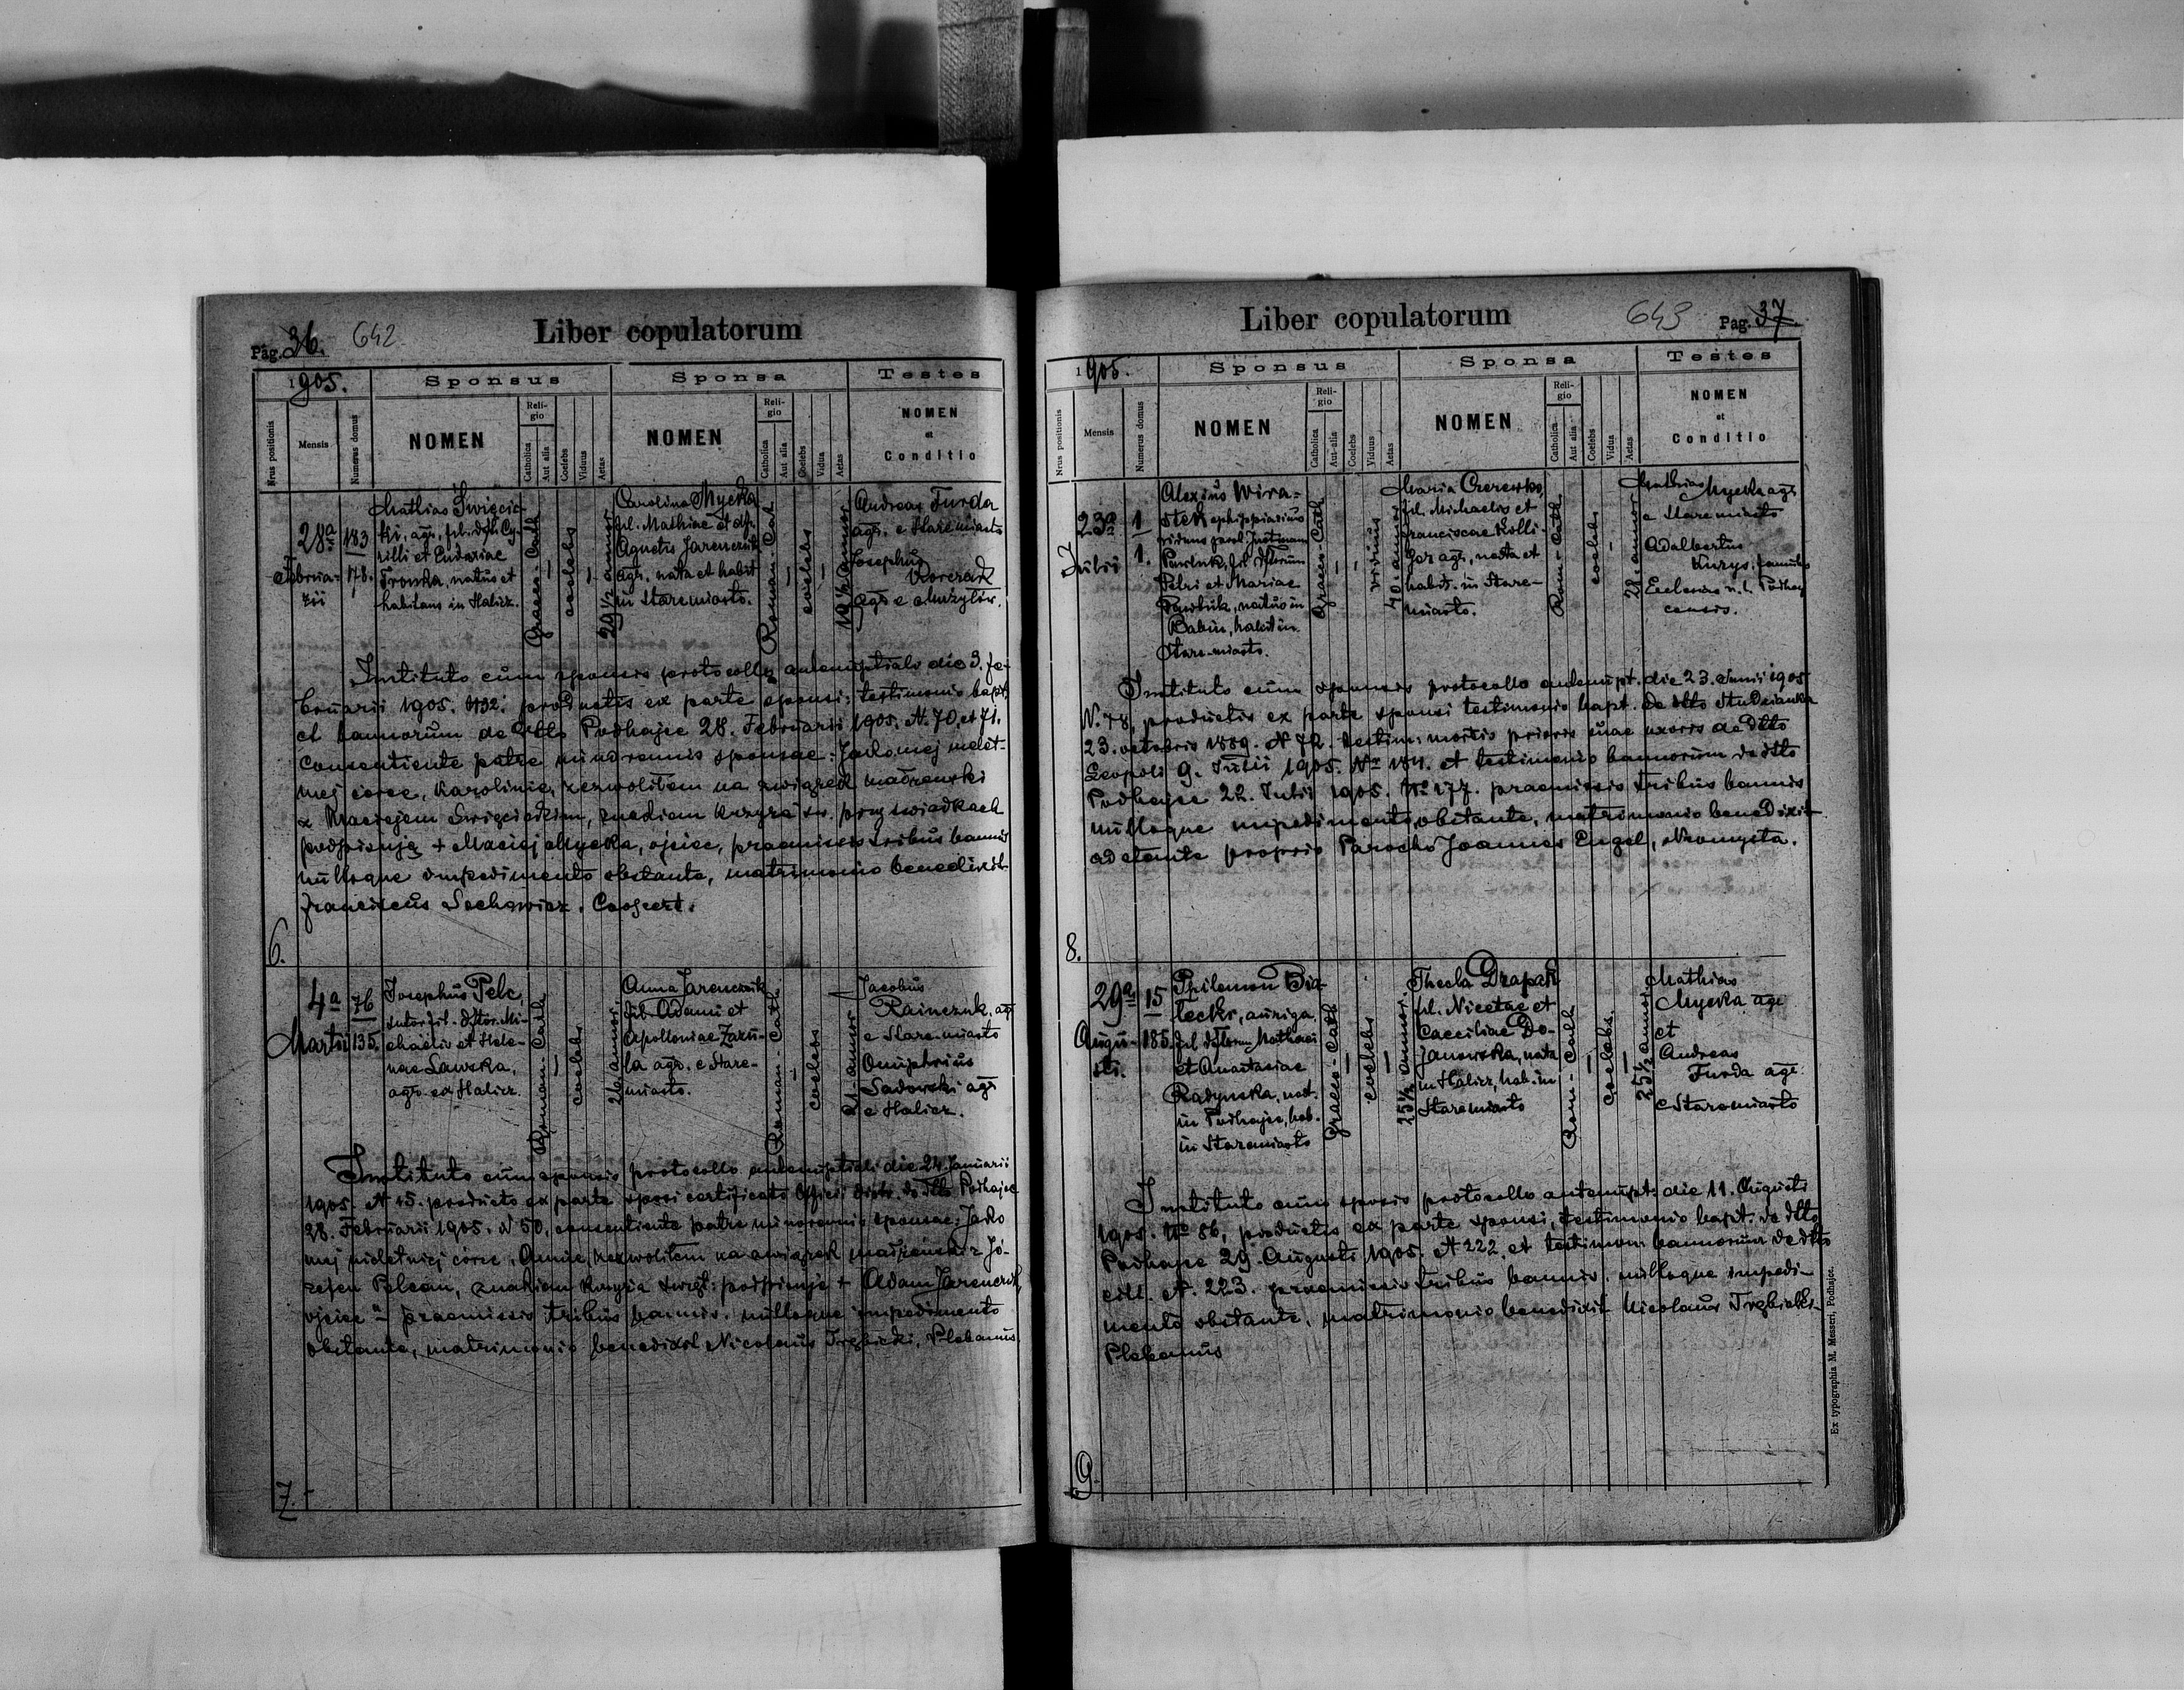 Pag. 36. 642
Liber copulatorum
1905.
Sponsus
Sponsa
Testes
Nrus positionis
Mensis
Numerus domus
NOMEN
Religio
Catholica
Aut alia
Coelebs
Viduus
Aetas
NOMEN
Religio
Catholica
Aut alia
Coelebs
Vidua
Aetas
NOMEN
et
Conditio
28a
Februa-
rii
183
178.
Mathias Święcic-
ki, agr., fil. dft. Cy-
rilli et Eudoxiae
Fronka, natus et
habitans in Halicz.
Graeco-Cath
coelebs
29 1/2 annor
Carolina Mycka
fil. Mathiae et dft.
Agnetis Jarenczuk
agr. nata et habit
in Staremiasto.
Roman-Cath
coelebs
19 1/2 annor
Andreas Furda
agr. e Staremiasto
Josephus
Korczak
agr. e Murzyłów.
Instituto cum sponsis protocollo antenuptiali die 3. Fe-
bruarii 1905. N32. productis ex parte sponsi: testimonio bapt.
et bannorum de dtto Podhajce 28. Februarii 1905. N. 70. et 71.
consentiente patre minorennis sponsae: Jako mej nielet-
niej córce, Karolinie, zezwolitem na związek małżenski
z Maciejem Święcickim, znakiem krzyża św. przy świadkach
podpisuję + Maciej Mycka, ojciec, praemissis tribus bannis
nulloque impedimento obstante, matrimonio benedixit
Franciscus Sochawicz. Coopert.
6.
4a
Martii
76
135.
Josephus Pelc,
sutor fil. dftor. Mi-
chaelis et Hele-
nae Lawska,
agr. ex Halicz.
Roman-Cath
coelebs
26 annor.
Anna Jarenczuk
fil. Adami et
Apolloniae Zaku-
la agr. e Stare-
miasto.
Roman-Cath
coelebs
21 annor
Jacobus
Rainczuk, agr
e Stare-miasto
Onuphrius
Sadowski agr
e Halicz.
Instituto cum sponsis protocollo antenuptiali die 24. Januarii
1905. N 15. producto ex parte sponsi certificato Officii distr. de dtto Podhajce
28. Februarii 1905. N 50, consentiente patre minorennis sponsae: Jako
mej nieletniej córce, Annie, zezwolitem na związek małżeński z Jó-
zefem Pelcem, znakiem krzyża święt: podpisuję + Adam Jarenczuk,
ojciec praemissis tribus bannis. nulloque impedimento
obstante, matrimonio benedixit Nicolaus Trzbicki, Plebanus.
7.
Liber copulatorum
643 Pag. 37.
1905.
Sponsus
Sponsa
Testes
Nrus positionis
Mensis
Numerus domus
NOMEN
Religio
Catholica
Aut alia
Coelebs
Viduus
Aetas
NOMEN
Religio
Catholica
Aut alia
Coelebs
Vidua
Aetas
NOMEN
et
Conditio
23a
Julii
1
1.
Alexius Wira-
stek ephippiarius
Pawluk, fil. dftorum
Petri et Mariae
Pawluk, natus in
Babin, habit in
Stare-miasto.
Graeco-Cath
viduus
40. annor
Maria Czerewko,
fil. Michaelis et
Franciscae Kolli-
ger agr., nata et
habit. in Stare-
miasto.
Rom-Cath
coelebs
28. annor
Mathias
Mycka agr
e Staremiasto
Adalbertus
Kurys. famulus
Ecclesiae r. l. Podhaj
censis.
Instituto cum sponsis protocollo antenupt. die 23. Junii 1905
N. 78, productis ex parte sponsi testimonio bapt. de dtto Studzianka
23. octobris 1889. N 72. testim: mortis prioris suae uxoris de dtto
Leopoli 9. Julii 1905. No 184. et testimonio bannorum de dtto
Podhajce 22. Julii 1905. No 177. praemissis tribus bannis
nulloque impedimento obstante, matrimonio benedixit
adstante proprio Parocho Joannes Engel, Neomysta.
8.
29a
Augu-
sti.
15
185.
Philemon Bia-
łecki, auriga,
fil dftorum Mathaei
et Anastasiae
Radynska, nat.
in Podhajce, hab.
in Staremiasto
Graeco-Cath
coelebs
25 1/2 annor.
Thecla Drapak
fil. Nicetae et
Caeciliae Do-
janowska, nata
in Halicz, hab. in
Staremiasto
Rom-Cath
coelebs.
25 1/2 annor
Mathias
Mycka agr
et
Andreas
Furda agr.
e Staremiasto
Instituto cum sponsis protocollo antenupt. die 11. Augusti
1905. No 86, productis ex parte sponsi, testimonio bapt. de dtto
Podhajce 29. Augusti 1905. N 222, et testimon: bannorum de dtto
eill. N. 223. praemissis tribus bannis. nulloque impedi-
mento obstante, matrimonio benedixit Nicolaus Trzbicki
Plebanus
9.
Ex typographia M. Messeri, Podhajce.